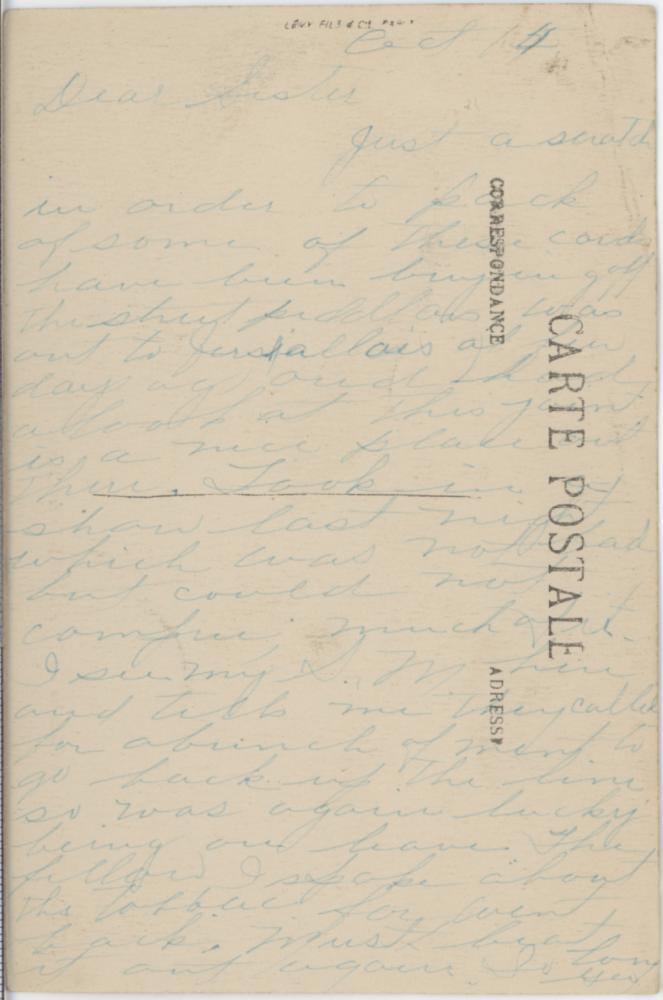 LEVY FILS & CIE PARIS
Oct 14
Dear Sister
Just a scratch
in order to pack
of some of these cards
have been buying off
the street peddlars was
out to Versallais a few
day ago and had
a look at this joint
is a nice place out
there. Took in a
show last night
which was not bad
but could not
compree much of it.
I see my S. M. here
and tells me they called
for a bunch of ment to
go back up the line
so was again lucky
being on leave The
fellow I spoke about
the tobbac for went
back. Must beat
it out again. So long
CORRESPONDANCE
CARTE POSTALE
ADRESSE